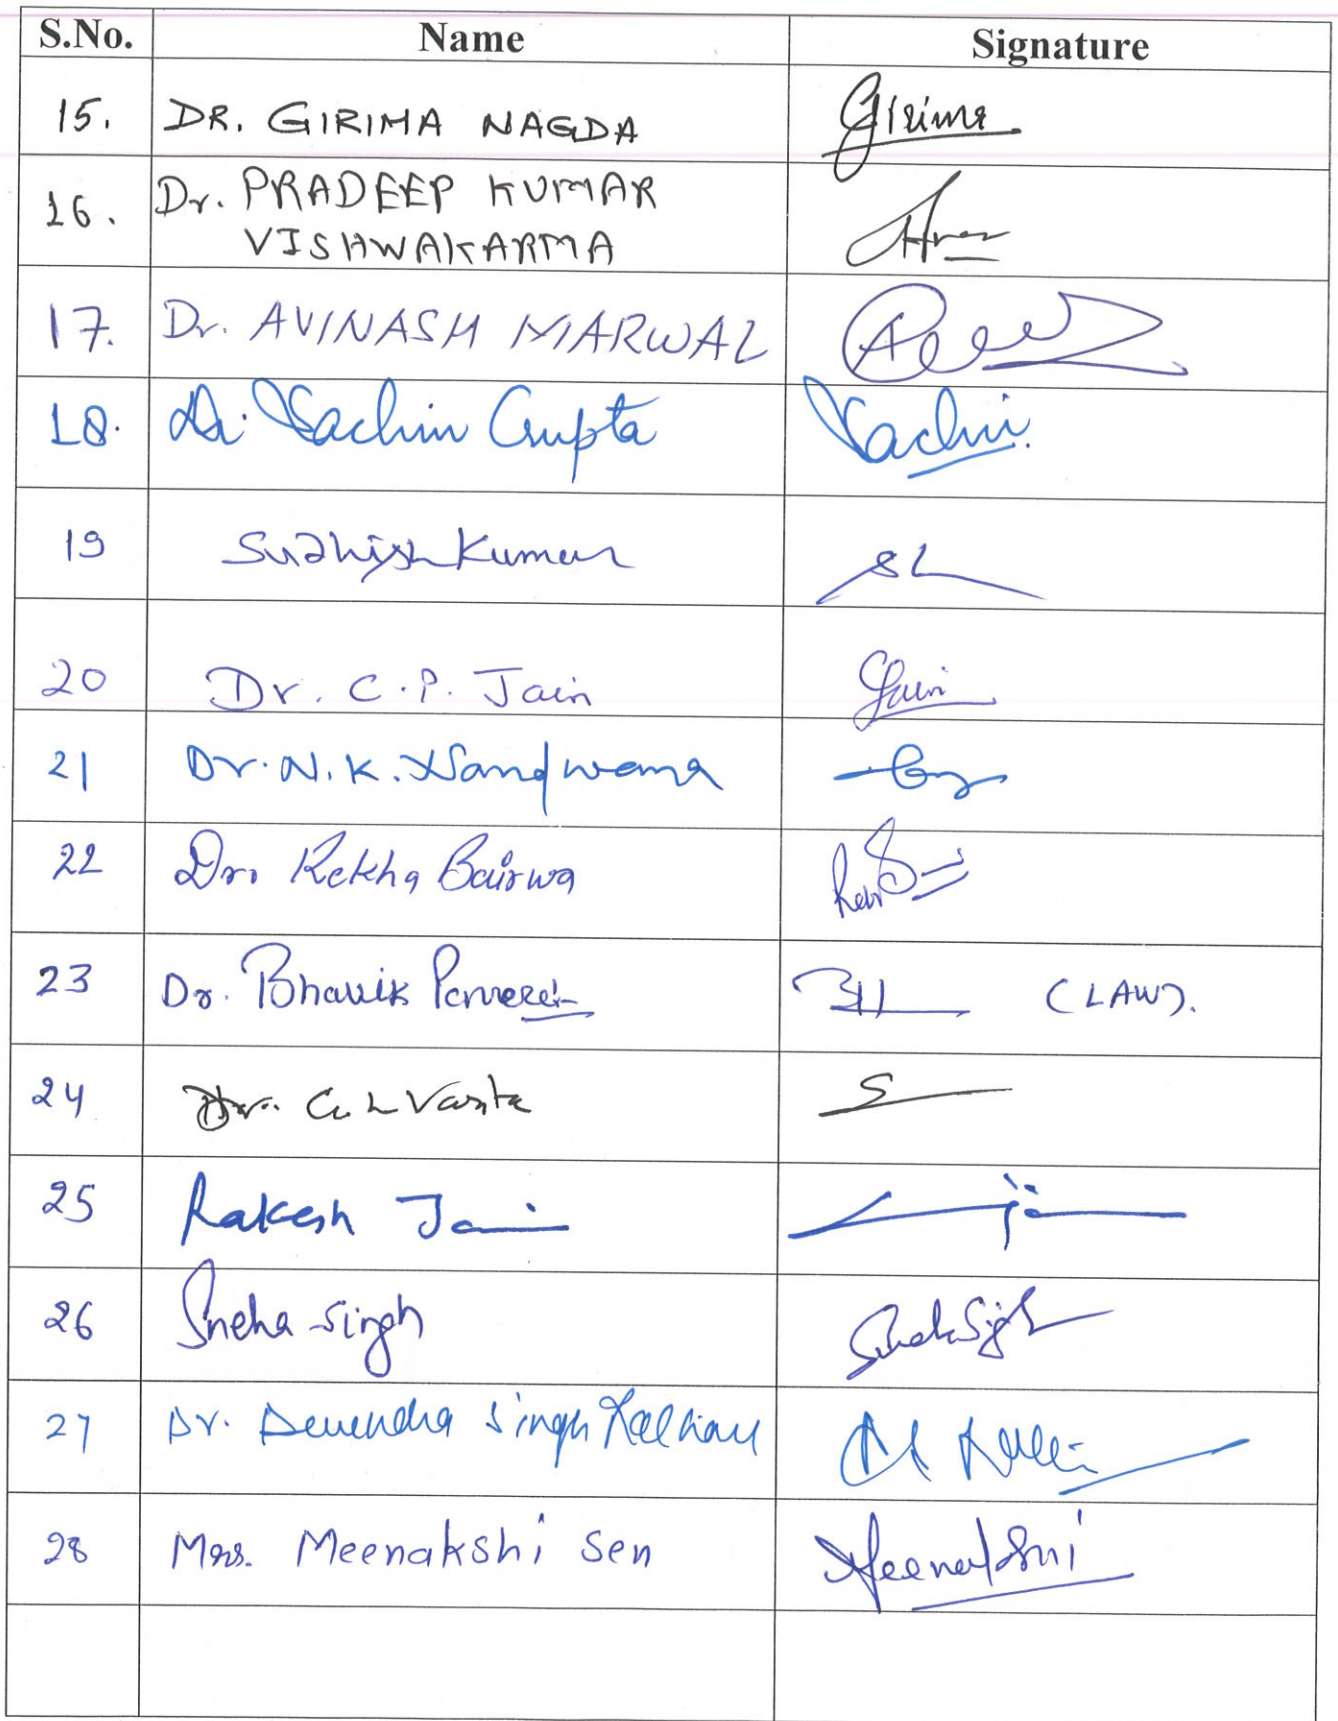 S.No. Name Signature
15. DR. GIRIMA NAGDA Girima
16. Dr. PRADEEP KUMAR
VISHWAKARMA
17. Dr. AVINASH MARWAL
18. Dr. Sachin Gupta Sachin.
19 Sudhish Kumar
20 Dr. C.P. Jain Jain
21 Dr. N.K. Nandwana
22 Dr. Rekha Bairwa
23 Dr. Bhavik (LAW).
24 Dr.
25 Rakesh Jain
26 Sneha Singh Sneha Singh
27 Dr. Devendra Singh
28 Mrs. Meenakshi Sen Meenakshi